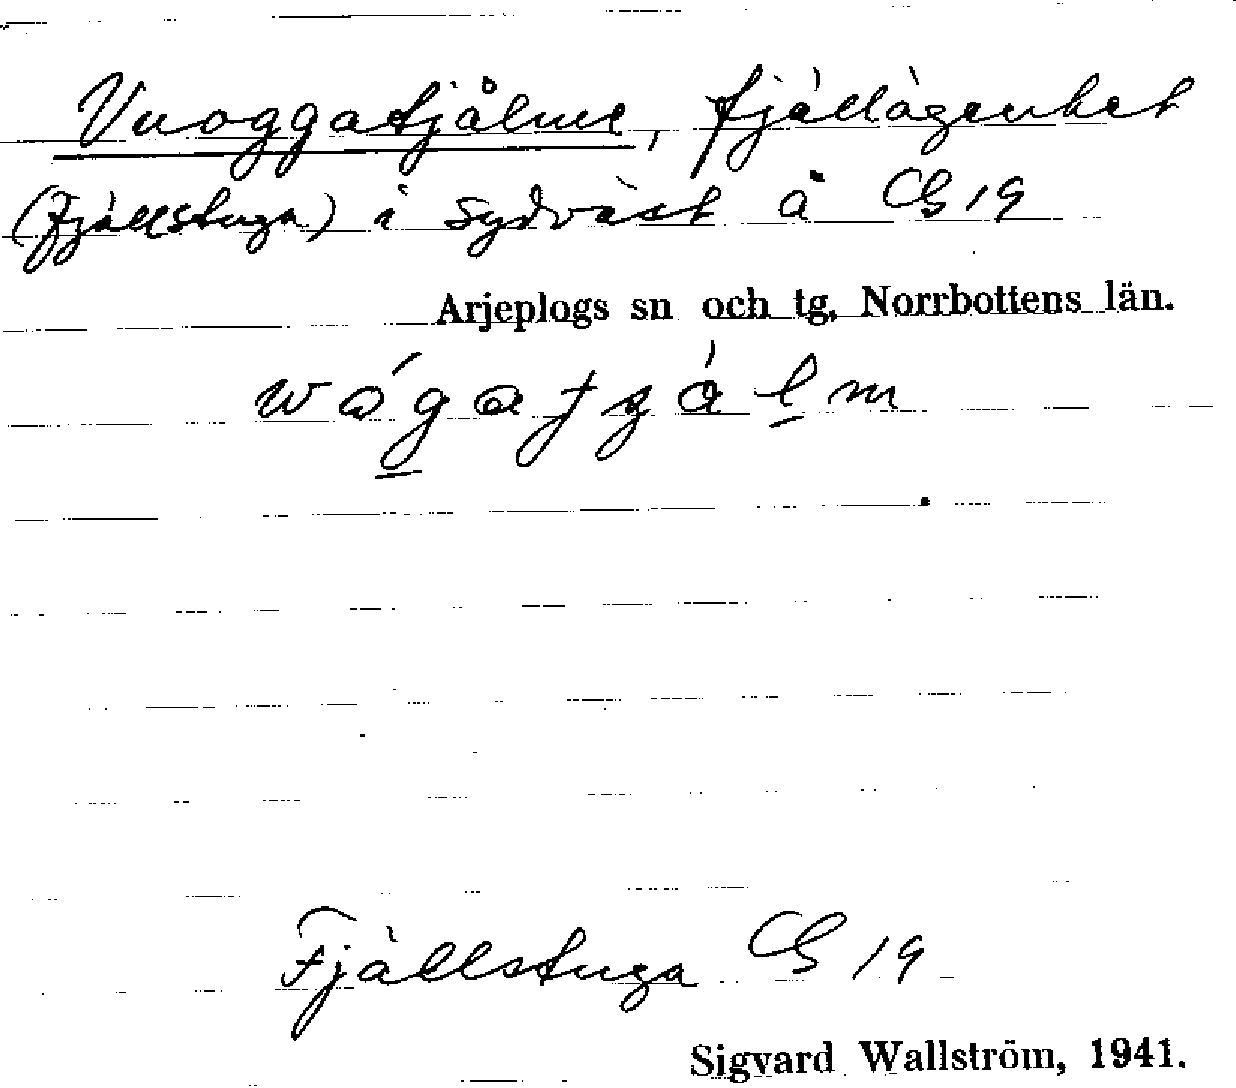 Vuoggatjålme, fjällägenhet
(fjällstuga) i sydväst å CG 19
Arjeplogs sn och tg, Norrbottens län.
Fjällstuga CG 19
Sigvard Wallström, 1941.